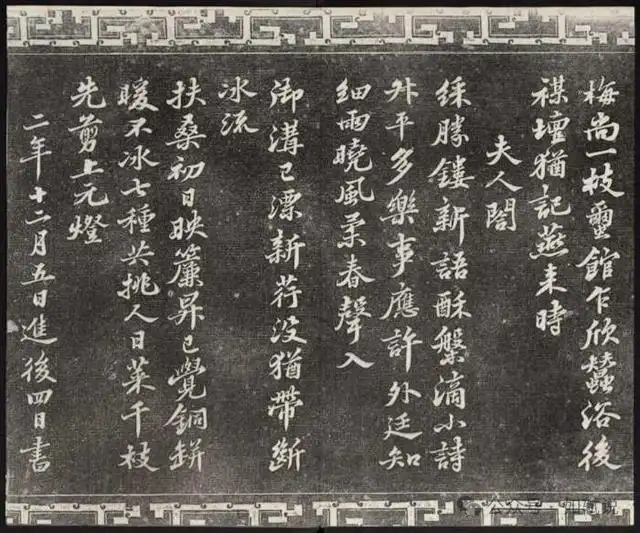 梅尚一枝蠒館乍欣蠶浴後
禖壇猶記燕来時
夫人閣
綵勝鏤新語酥槃滴小詩
升平多樂事應許外廷知
細雨曉風柔春聲入
御溝已漂新荇没猶帶斷
冰流
扶桑初日映簾昇已覺銅缾
暖不冰七種共挑人日菜千枝
先剪上元燈
二年十二月五日進後四日書
公众号